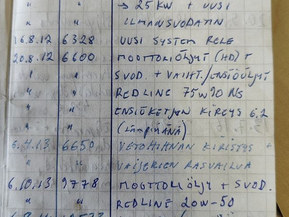 → 25KW + UUSI
" " ILMANSUODATIN
16.8.12 6328 UUSI SYSTEM RELE
20.8.12 6600 MOOTTORIÖLJY (HD) +
" " SUOD + VAIHT./ENSIÖÖLJYT
" " REDLINE 75W90 NS
" " ENSIÖKETJUN KIREYS 6,2
" " (KYLMÄNÄ)
6.4.13 6650 VETOHIHNAN KIRISTYS +
" " VAIJERIEN RASVAILUA
6.10.13 9778 MOOTTORIÖLJY + SUOD.
" " REDLINE 20W-50